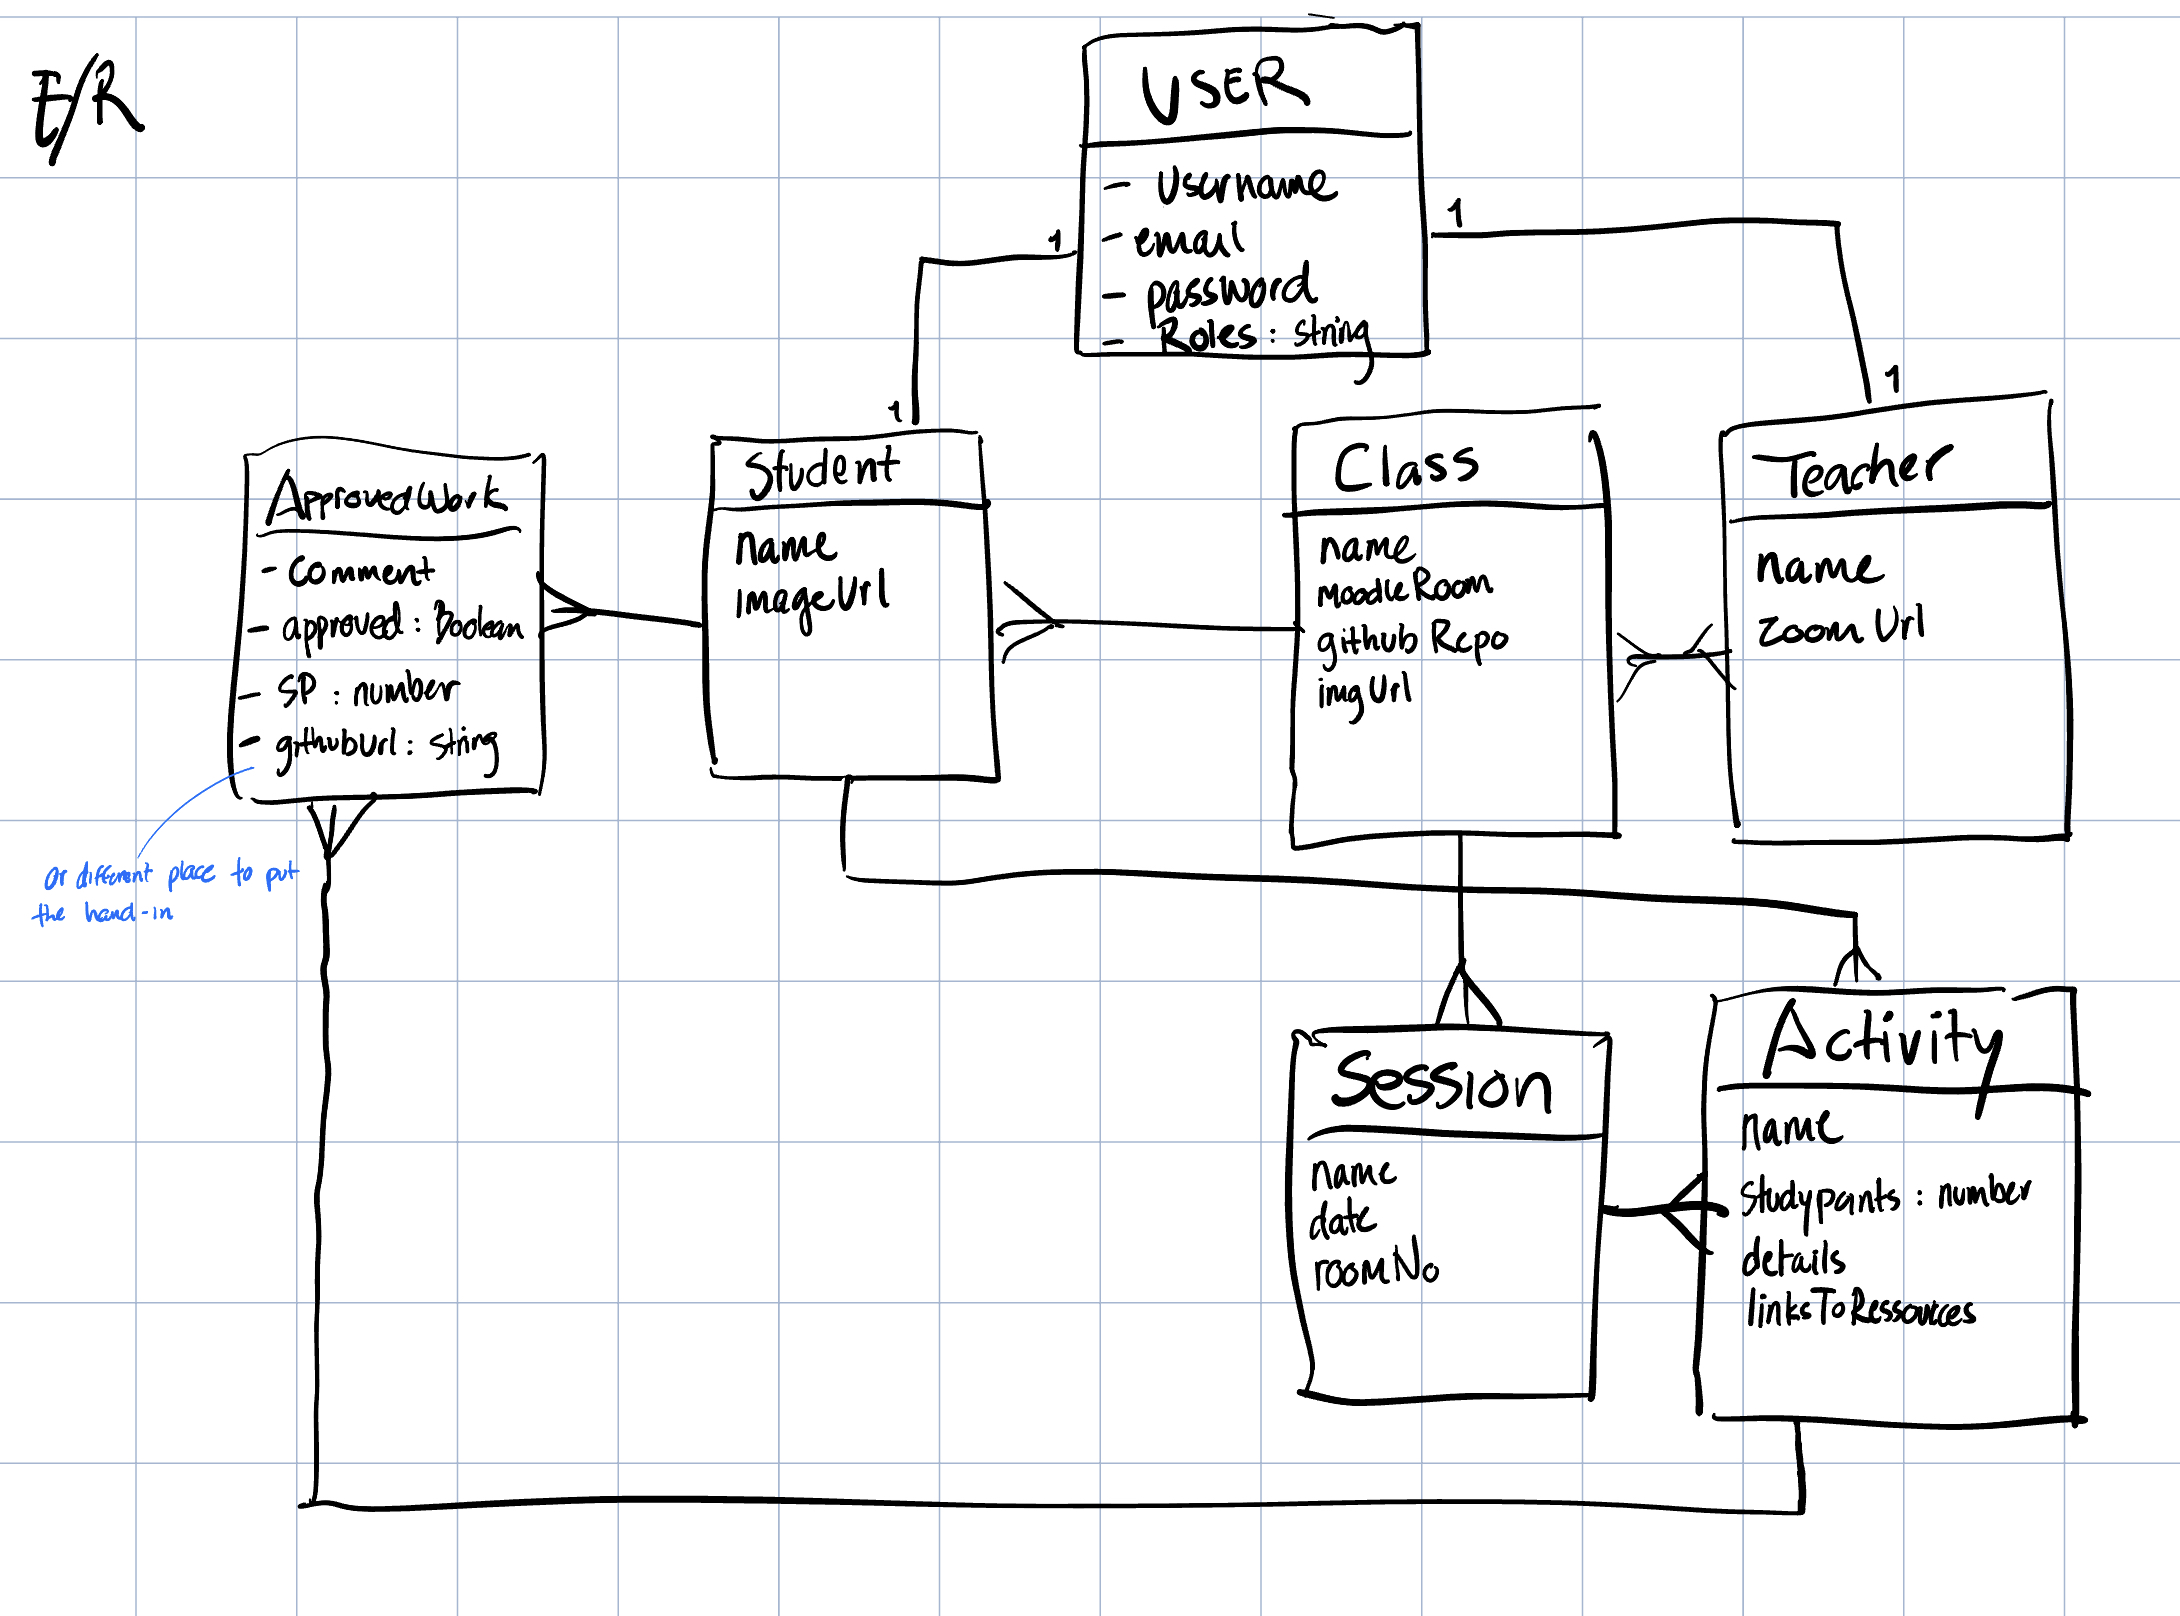 E/R
USER
- Username
- email
- password
- Roles : string
1
1
1
1
ApprovedWork
- comment
- approved : Boolean
- SP : number
- githubUrl : string
or different place to put
the hand-in
Student
name
imageUrl
Class
name
MoodleRoom
github Repo
imgUrl
Teacher
name
zoomUrl
Session
name
date
roomNo
Activity
name
studypoints : number
details
linksToRessources